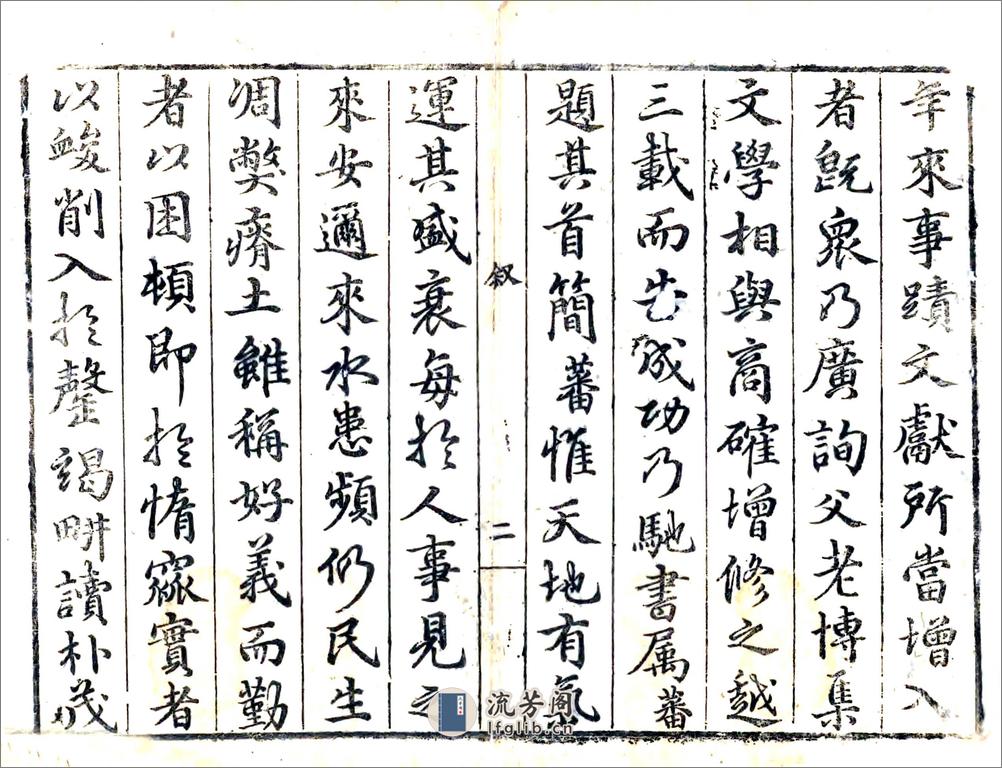 年來事蹟文獻所當增入
者旣衆乃廣詢父老博集
文學相與商確增修之越
三載而告成功乃馳書属蕃
題其首簡蕃惟天地有氣
叙
二
運其盛衰每於人事見之
來安邇來水患頻仍民生
凋弊瘠土雖稱好義而勤
者以困頓即於惰窳實者
以朘削入於罄竭畊讀朴茂
流芳阁
lfglib.cn